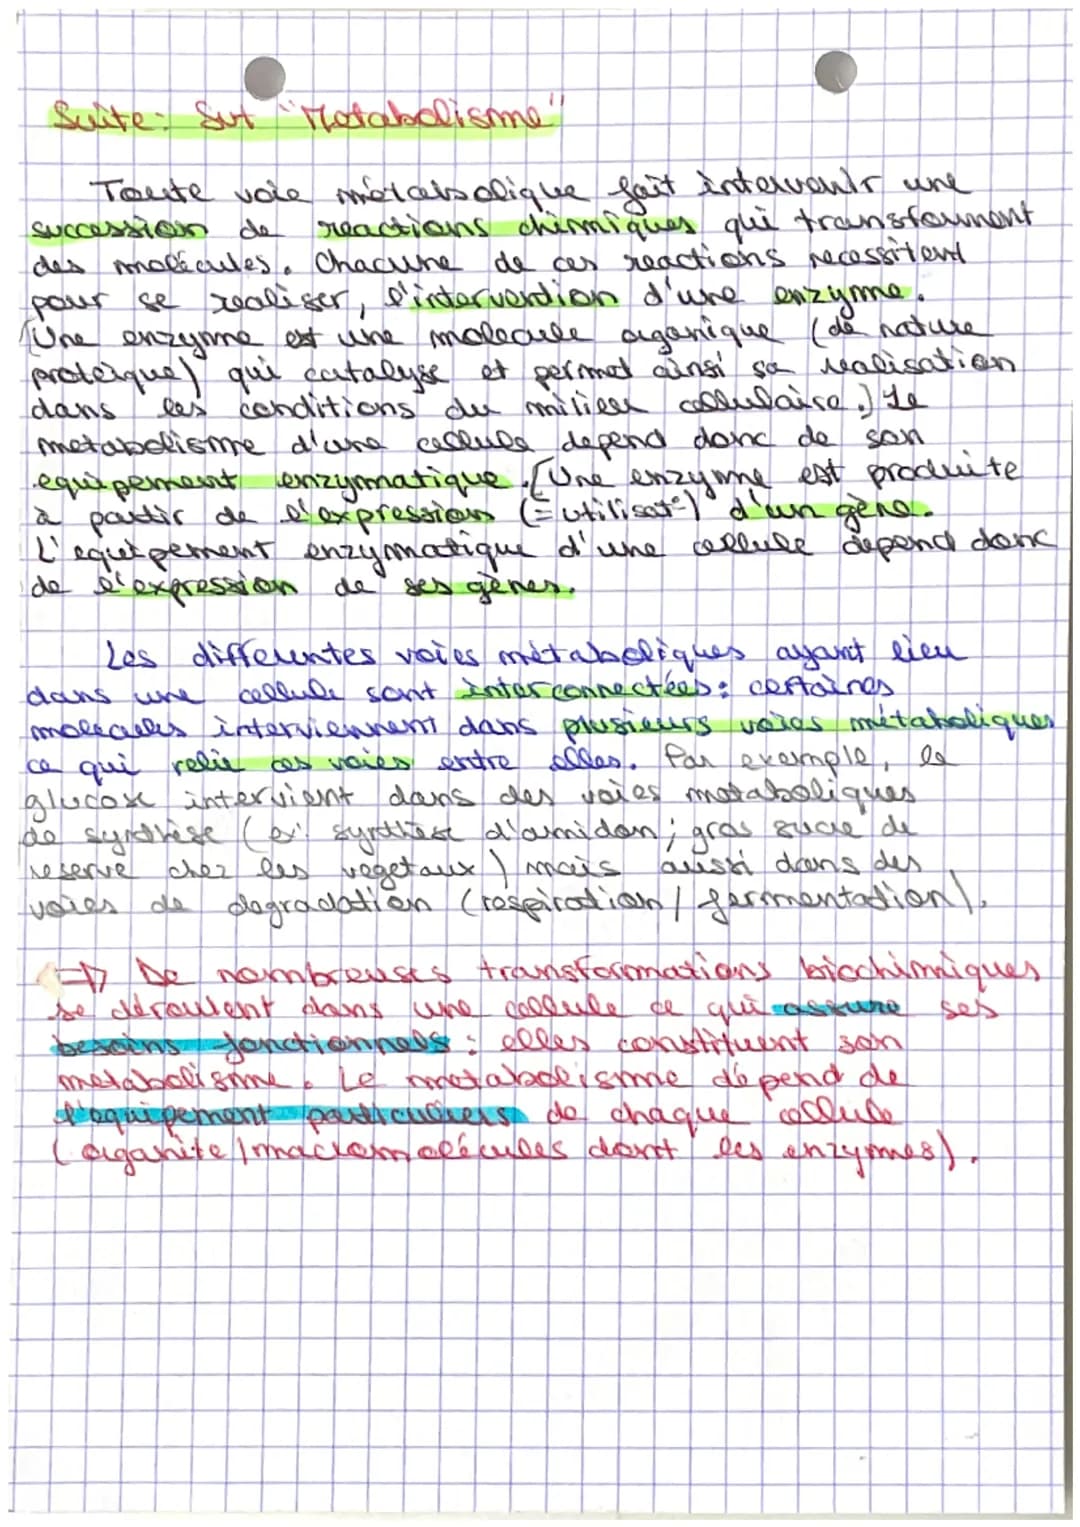 Suite: Sut "Metabolisme"
Toute voie métabolique fait intervenir une
succession de reactions chimiques qui transforment
des molécules. Chacune de ces reactions necessitent
pour se realiser, l'intervention d'une enzyme.
[Une enzyme est une molecule organique (de nature
protéique) qui catalyse et permet ainsi sa realisation
dans les conditions du milieu cellulaire.] Le
metabolisme d'une cellule depend donc de son
equipement enzymatique. [Une enzyme est produite
à partir de l'expression (= utilisat°) d'un gène.
L'equipement enzymatique d'une cellule depend donc
de l'expression de ses gènes.
Les differentes voies métaboliques ayant lieu
dans une cellule sont interconnectées: certaines
molécules interviennent dans plusieurs voies métaboliques
ce qui relie ces voies entre elles. Par exemple, le
glucose intervient dans des voies metaboliques
de synthèse (ex: synthèse d'amidon; gros sucre de
reserve chez les vegetaux) mais aussi dans des
voies de degradation (respiration / fermentation).
=> De nombreuses transformations biochimiques
se déroulent dans une cellule ce qui assure ses
besoins fonctionnels : elles constituent son
metabolisme. Le metabolisme dépend de
l'equipement particuliers de chaque cellule
(organite / macromolécules dont les enzymes).